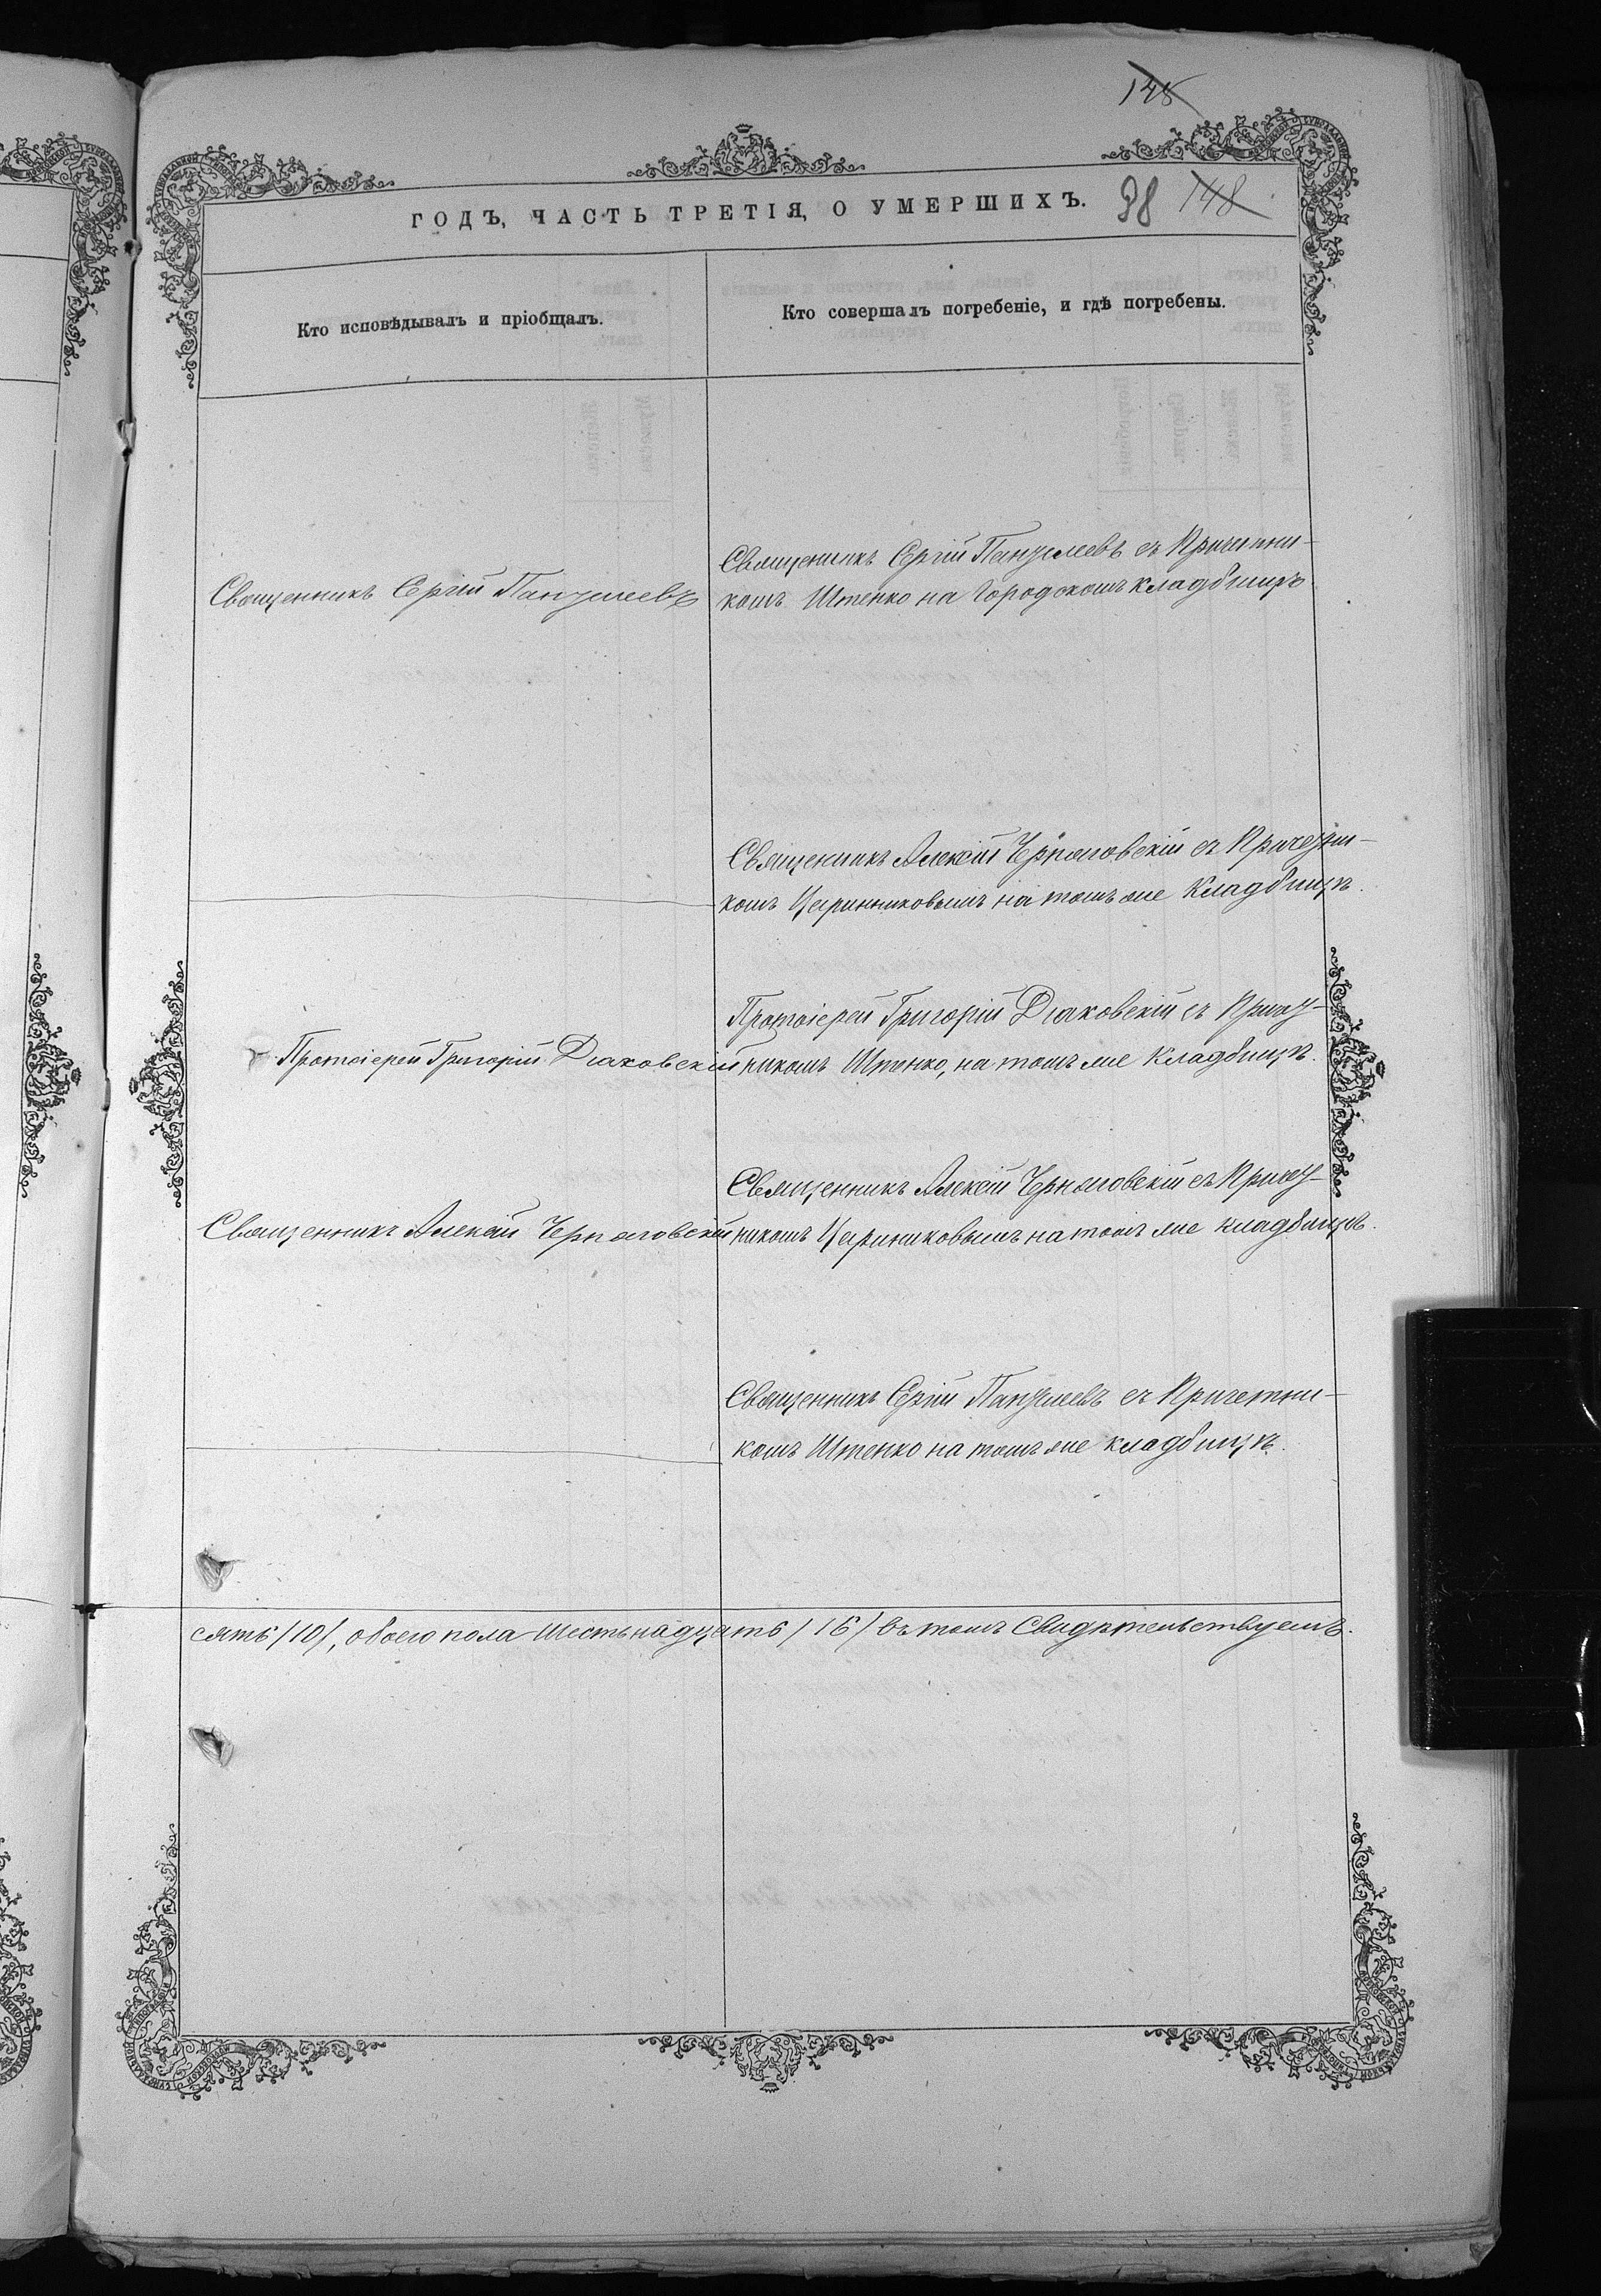 148
ГОДЪ, ЧАСТЬ ТРЕТІЯ, О УМЕРШИХЪ. 98 148
Кто исповѣдывалъ и пріобщалъ.
Кто совершалъ погребеніе, и гдѣ погребены.
Священникъ Сергій
Священникъ Сергій съ Причетни-
комъ Штенко на Городскомъ кладбищѣ
Священникъ Алексій съ Причетни-
комъ на томъ же Кладбищѣ.
Протоіерей Григорій Діаковскій
Протоіерей Григорій Діаковскій съ Причет-
никомъ Штенко, на томъ же Кладбищѣ.
Священникъ Алексій
Священникъ Алексій съ Причет-
никомъ на томъ же кладбищѣ.
Священникъ Сергій съ Причетни-
комъ Штенко на томъ же кладбищѣ.
сять /10/, обоего пола Шестьнадцать /16/ въ томъ Свидѣтельствуемъ.